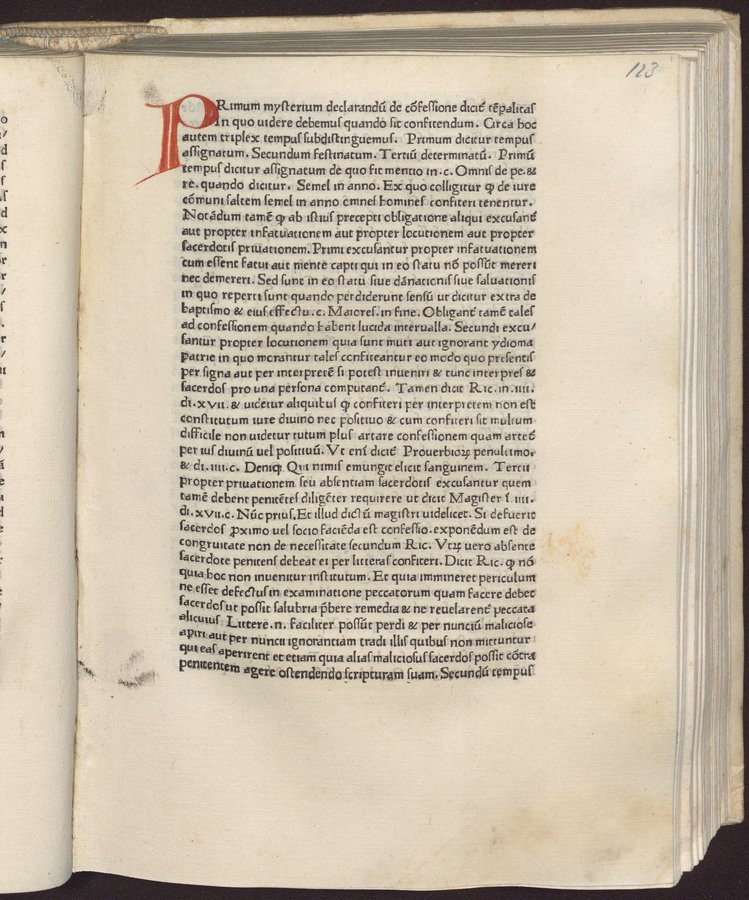 123
PRimum mysterium declarandū de cōfessione diciṫ tēpalitas
In quo uidere debemus quando sit confitendum. Circa hoc
autem triplex tempus subdistinguemus. Primum dicitur tempus
assignatum. Secundum festinatum. Tertiū determinatū. Primū
tempus dicitur assignatum de quo fit mentio in .c. Omnis de pe. &
re. quando dicitur. Semel in anno. Ex quo colligitur ꝙ de iure
cōmuni saltem semel in anno omnes homines confiteri tenentur.
Notādum tamē ꝙ ab istius precepti obligatione aliqui excusanṫ
aut propter infatuationem aut propter locutionem aut propter
sacerdotis priuationem. Primi excusantur propter infatuationem
cum essent fatui aut mente capti qui in eo statu nō possūt mereri
nec demereri. Sed sunt in eo statu siue dānationis siue saluationis
in quo reperti sunt quando perdiderunt sensū ut dicitur extra de
baptismo & eius effectu. c. Maiores. in fine. Obliganṫ tamē tales
ad confessionem quando habent lucida interualla. Secundi excu/
santur propter locutionem quia sunt muti aut ignorant ydioma
patrie in quo morantur tales confiteantur eo modo quo presentis
per signa aut per interpretē si potest inueniri & tunc interpres &
sacerdos pro una persona computanṫ. Tamen dicit Ric. in. iiii.
di. xvii. & uidetur aliquibus ꝙ confiteri per interpretem non est
constitutum iure diuino nec positiuo & cum confiteri sit multum
difficile non uidetur tutum plus artare confessionem quam arteṫ
per ius diuinū uel positiuū. Vt enī diciṫ Prouerbioꝝ penultimo.
& di. iiii. c. Deniqꝫ Qui nimis emungit elicit sanguinem. Tertii
propter priuationem seu absentiam sacerdotis excusantur quem
tamē debent penitētes diligēter requirere ut dicit Magister ī. iiii.
di. xvii. c. Nūc prius. Et illud dictū magistri uidelicet. Si defuerit
sacerdos ꝓximo uel socio faciēda est confessio. exponēdum est de
congruitate non de necessitate secundum Ric. Vtꝝ uero absente
sacerdote penitens debeat ei per litteras confiteri. Dicit Ric. ꝙ nō
quia hoc non inuenitur institutum. Et quia immineret periculum
ne esset defectus in examinatione peccatorum quam facere debet
sacerdos ut possit salubria p̄bere remedia & ne reuelarenṫ peccata
alicuius. Littere .n. faciliter possūt perdi & per nunciū maliciose
apiri aut per nuncii ignorantiam tradi illis quibus non mittuntur
qui eas aperirent et etiam quia alias maliciosus sacerdos possit cōtra
penitentem agere ostendendo scripturam suam. Secundū tempus